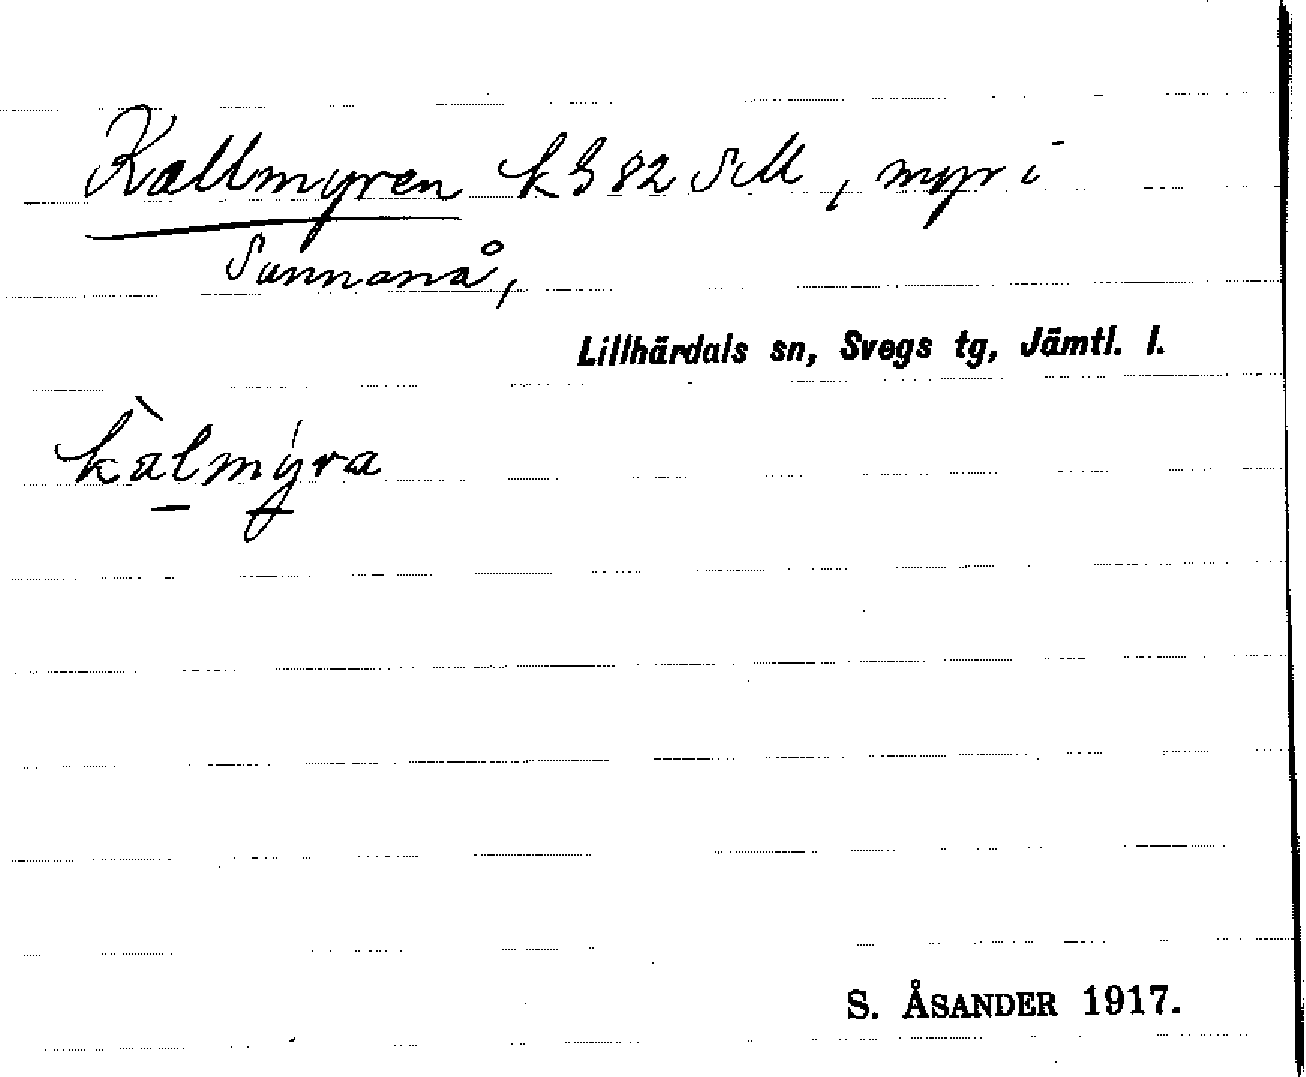 Kallmyren kG 82 SM, myr i
Sunnanå,
Lillhärdals sn, Svegs tg, Jämtl. l.
kàlmýra
S. ÅSANDER 1917.